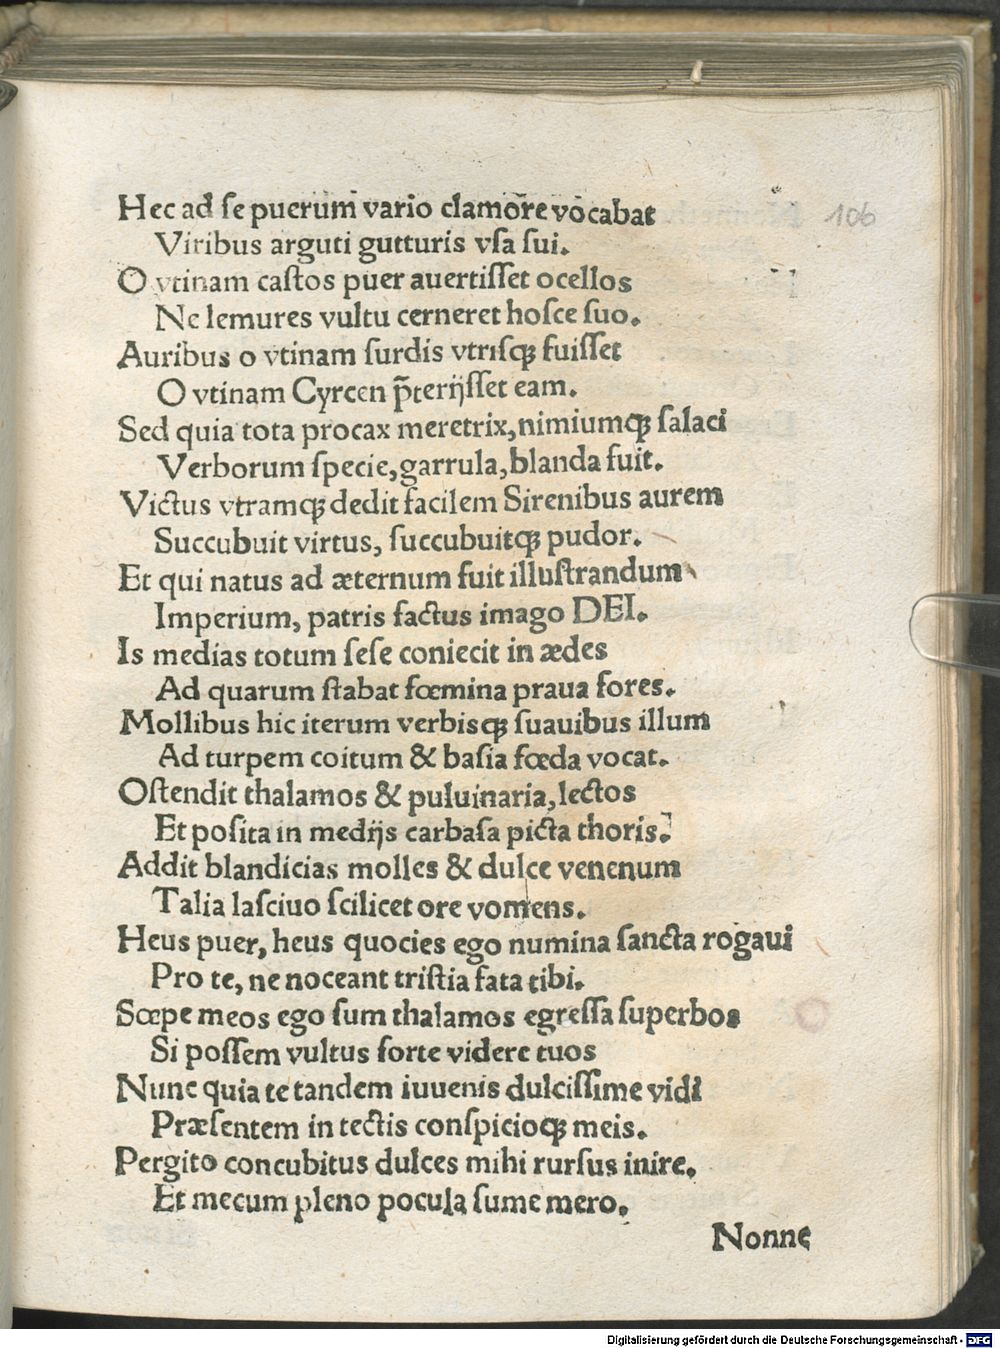 106
Hec ad se puerum vario clamore vocabat
Viribus arguti gutturis vsa sui.
O vtinam castos puer auertisset ocellos
Ne lemures vultu cerneret hosce suo.
Auribus o vtinam surdis vtrisqꝫ fuisset
O vtinam Cyrcen p̄terijsset eam.
Sed quia tota procax meretrix, nimiumqꝫ salaci
Verborum specie, garrula, blanda fuit.
Victus vtramqꝫ dedit facilem Sirenibus aurem
Succubuit virtus, succubuitqꝫ pudor.
Et qui natus ad æternum fuit illustrandum
Imperium, patris factus imago DEI.
Is medias totum sese coniecit in ædes
Ad quarum stabat fœmina praua fores.
Mollibus hic iterum verbisqꝫ suauibus illum
Ad turpem coitum & basia fœda vocat.
Ostendit thalamos & puluinaria, lectos
Et posita in medijs carbasa picta thoris.
Addit blandicias molles & dulce venenum
Talia lasciuo scilicet ore vomens.
Heus puer, heus quocies ego numina sancta rogaui
Pro te, ne noceant tristia fata tibi.
Sœpe meos ego sum thalamos egressa superbos
Si possem vultus forte videre tuos
Nunc quia te tandem iuuenis dulcissime vidi
Præsentem in tectis conspicioqꝫ meis.
Pergito concubitus dulces mihi rursus inire.
Et mecum pleno pocula sume mero.
Nonne
Digitalisierung gefördert durch die Deutsche Forschungsgemeinschaft - DFG